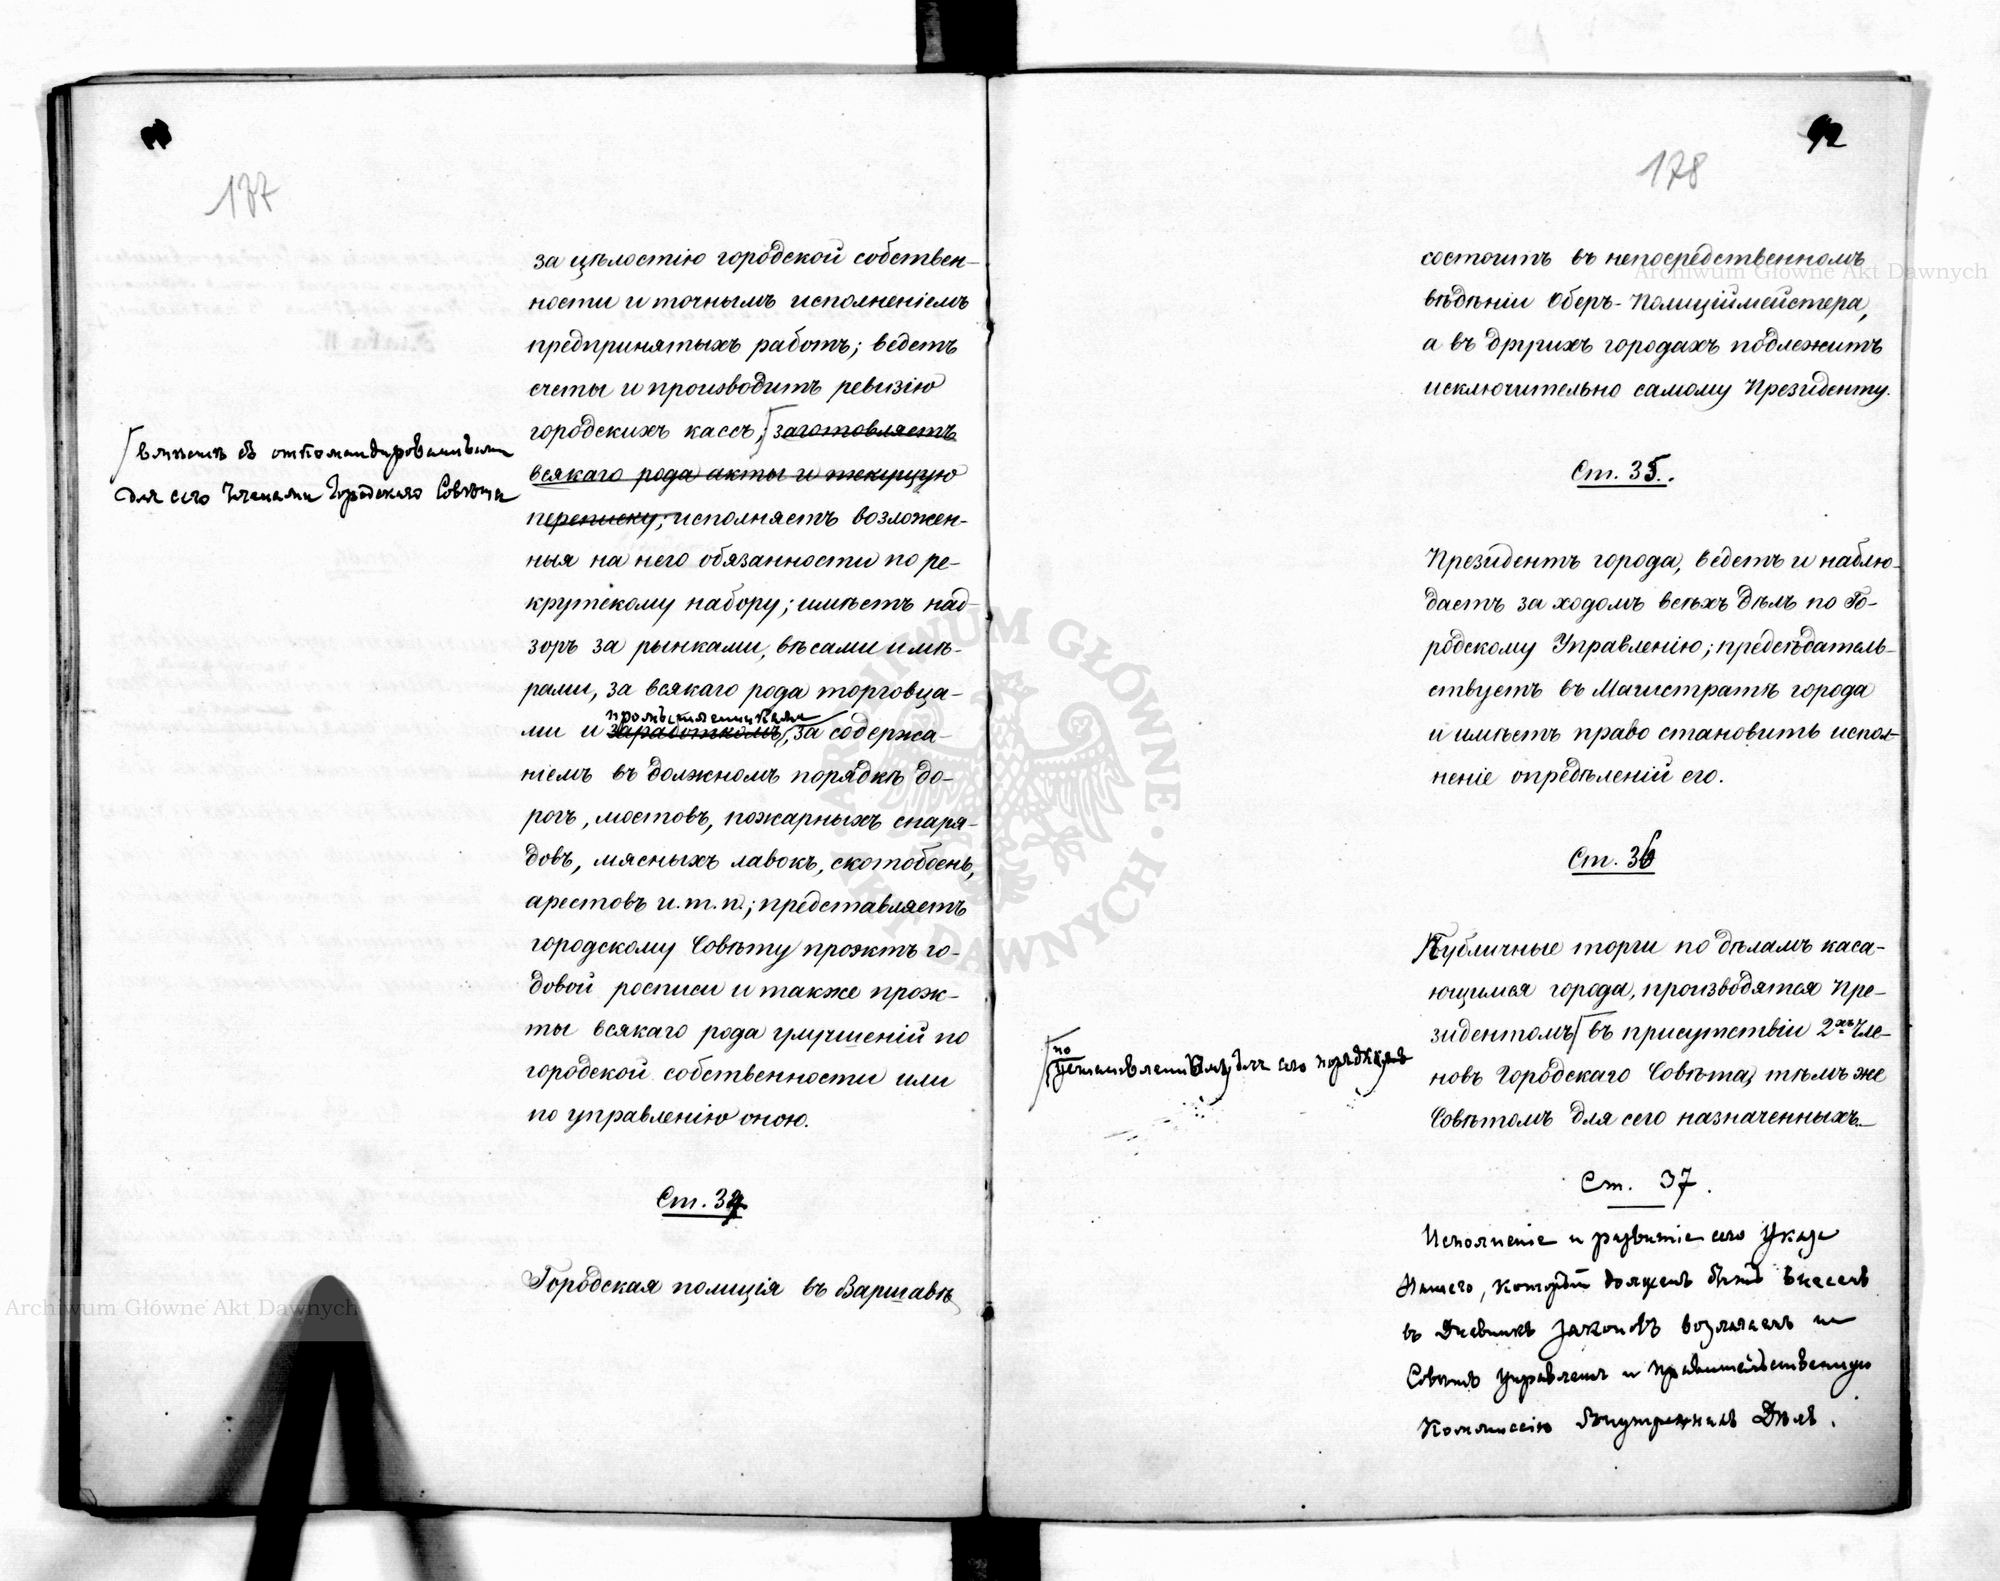 177
за цѣлостію городской собствен-
ности и точнымъ исполненіемъ
предпринятыхъ работъ; ведетъ
счеты и производитъ ревизію
городскихъ кассъ, заготовляетъ
всякаго рода акты и текущую
переписку; исполняетъ возложен-
ныя на него обязанности по ре-
крутскому набору; имѣетъ над-
зоръ за рынками, вѣсами и мѣ-
рами, за всякаго рода торговца-
промышленниками
ми и заработкомъ, за содержа-
ніемъ въ должномъ порядкѣ до-
рогъ, мостовъ, пожарныхъ снаря-
довъ, мясныхъ лавокъ, скотобоень,
арестовъ и.т.п.; представляетъ
городскому Совѣту проэктъ го-
довой росписи и также проэк-
ты всякаго рода улучшеній по
городской собственности или
по управленію оною.
Ст. 34
Городская полиція въ Варшавѣ
вмѣстѣ съ откомандированными
для сего Членами Городскаго Совѣта
92
178
состоитъ въ непосредственномъ
вѣдѣніи Оберъ-Полиціймейстера,
а въ другихъ городахъ подлежитъ
исключительно самому Президенту.
Ст. 35.
Президентъ города, ведетъ и наблю-
даетъ за ходомъ всѣхъ дѣлъ по Го-
родскому Управленію; предсѣдатель-
ствуетъ въ Магистратѣ города
и имѣетъ право становить испол-
неніе опредѣленій его.
Ст. 36
Публичные торги по дѣламъ каса-
ющимся города, производятся Пре-
зидентомъ въ присутствіи 2хъ Чле-
новъ Городскаго Совѣта, тѣмъ же
Совѣтомъ для сего назначенныхъ.
по
для сего
Ст. 37.
Исполненіе и развитіе сего Указа
Нашего, который долженъ быть внесенъ
въ Дневникъ Законовъ возлагаемъ на
Совѣтъ Управленія и Правительственную
Коммиссію Внутреннихъ Дѣлъ.
Archiwum Główne Akt Dawnych
Archiwum Główne Akt Dawnych
ARCHIWUM GŁÓWNE AKT DAWNYCH